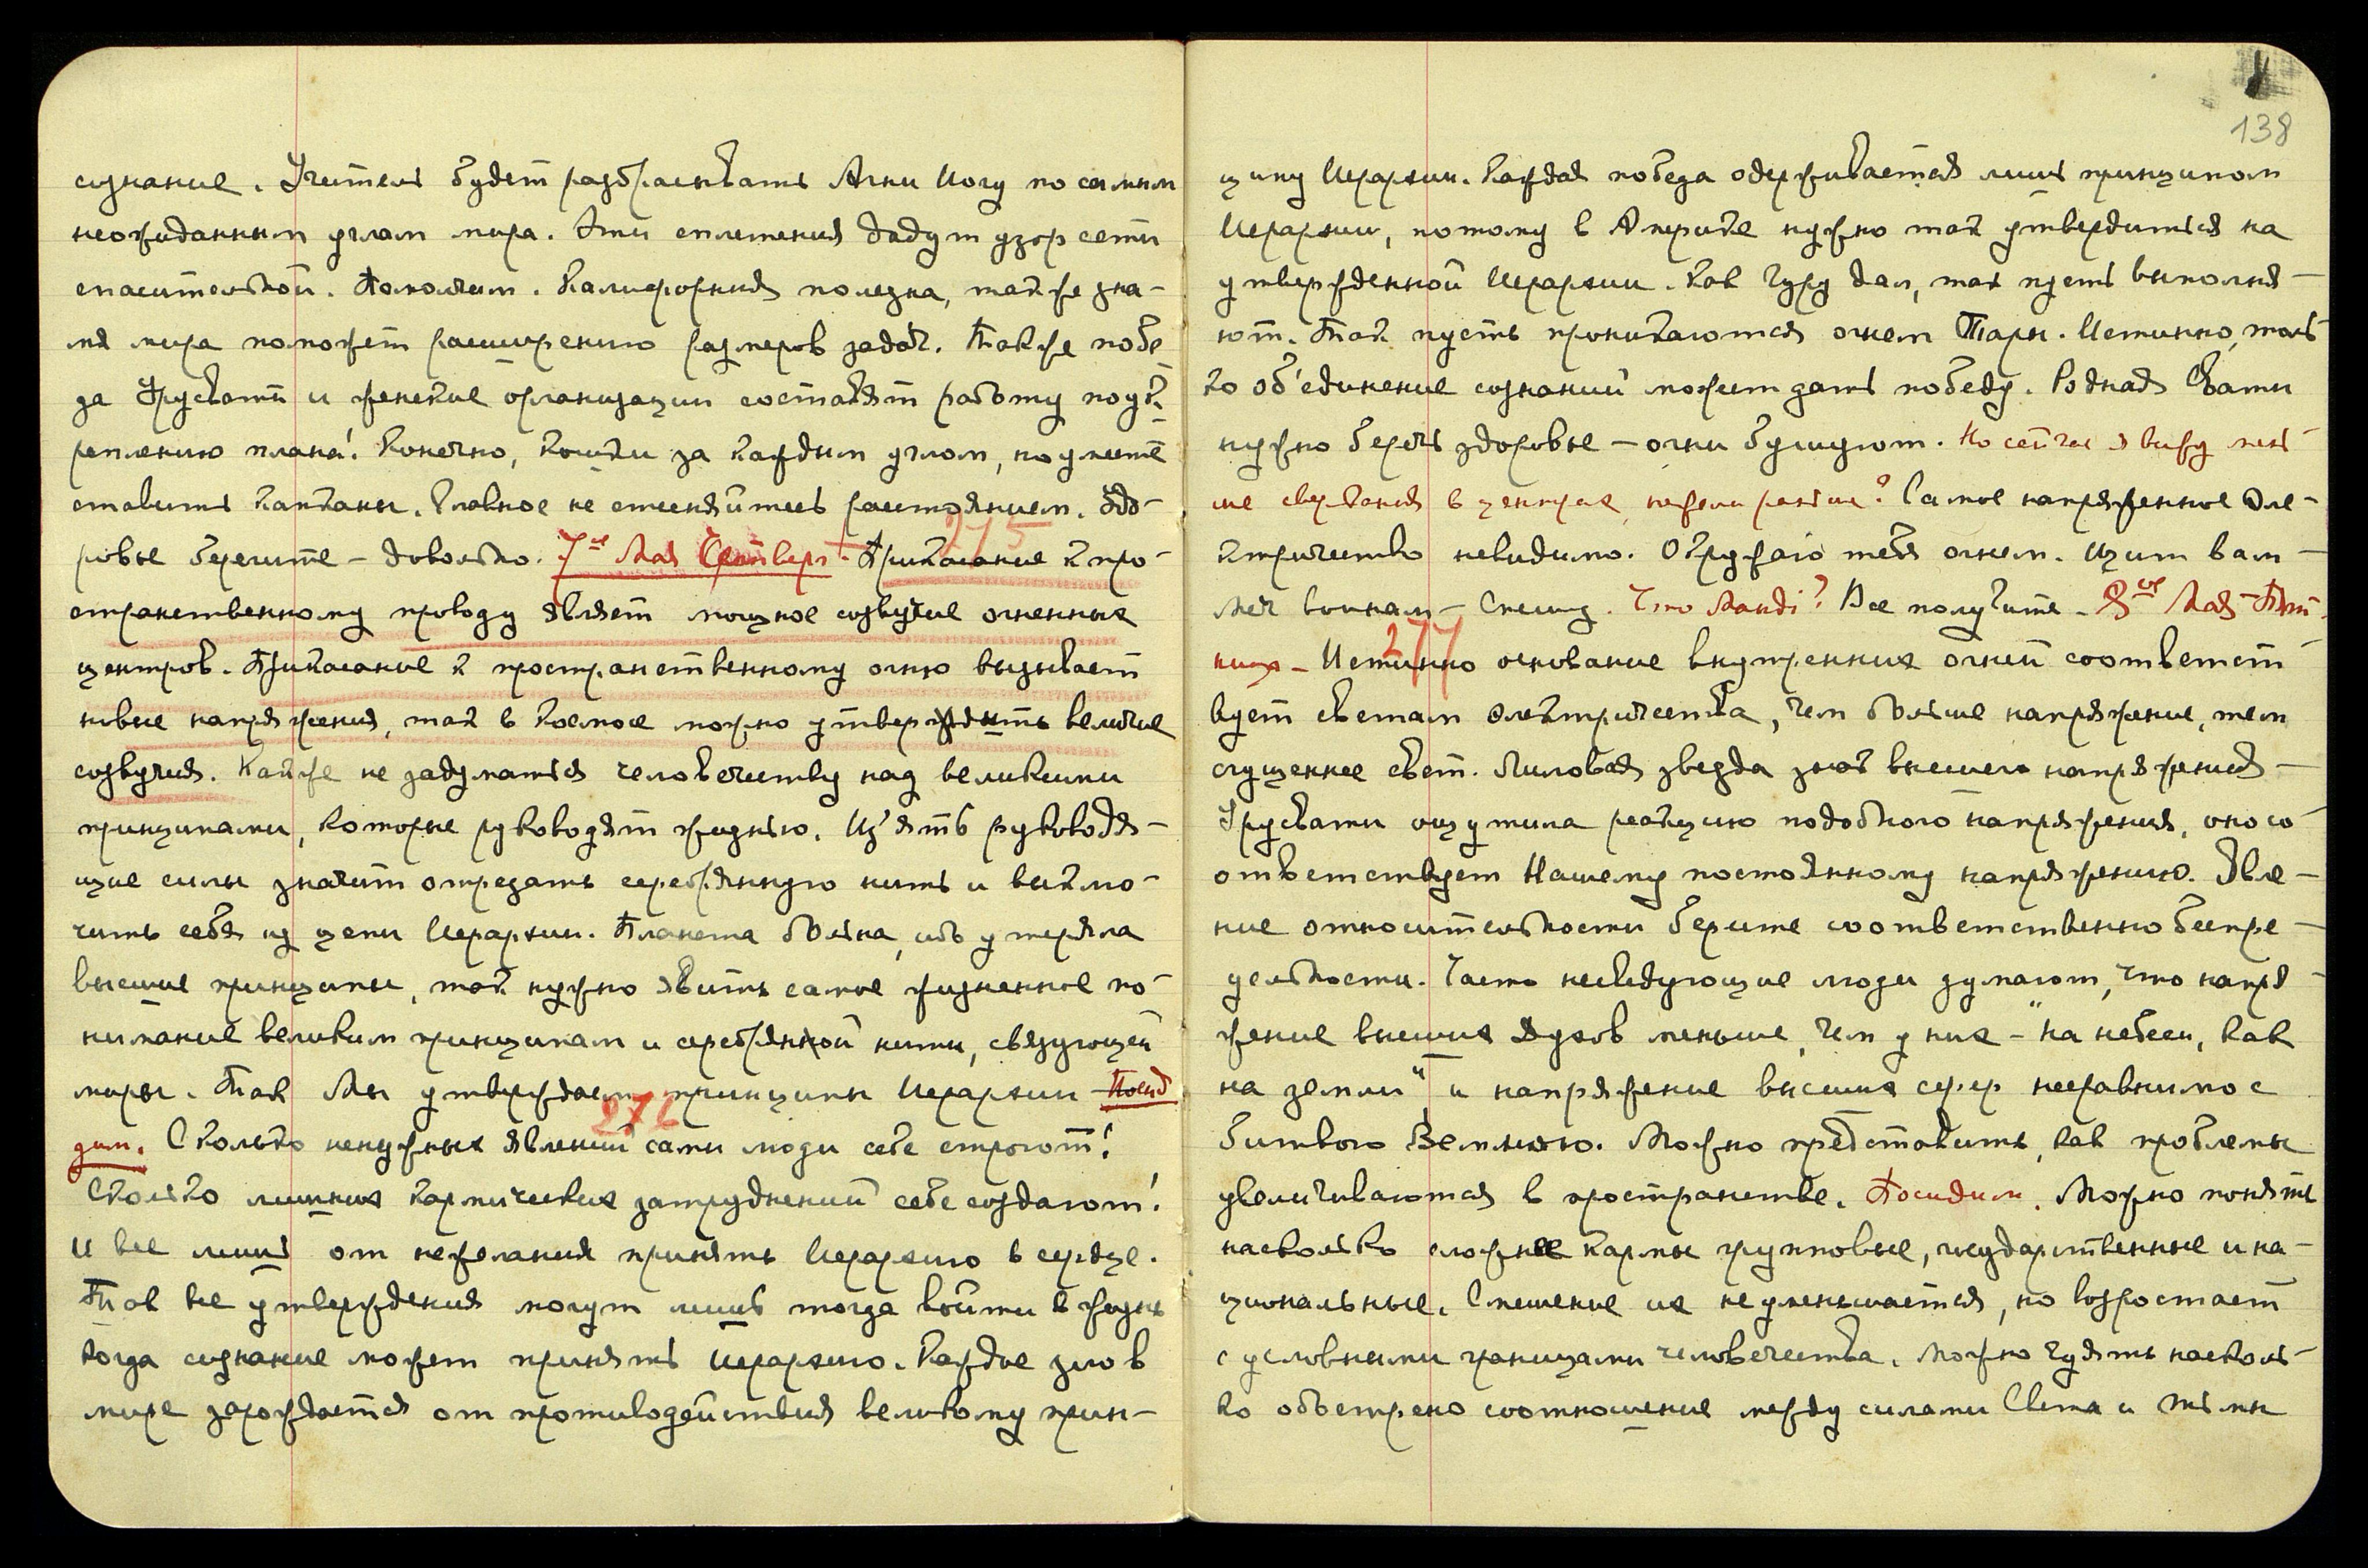 сознание. Учитель будет разбрасывать Агни Йогу по самым
неожиданным углам мира. Эти сплетения дадут узор сети
спасительной. Помолчим. Калифорния полезна, также зна-
мя мира поможет расширению размеров задач. Также побе-
да Урусвати и женские организации составят работу подк-
реплению плана! Конечно, кошки за каждым углом, но умейте
ставить капканы. Главное не стесняйтесь расстоянием. Здо-
ровье берегите – довольно. 7ое Мая Четверг – 275 Прикасание к про-
странственному проводу являет мощное созвучие огненных
центров. Прикасание к пространственному огню вызывает
новые напряжения, так в космосе можно утвердить величие
созвучия. Как же не задуматься человечеству над великими
принципами, которые руководят жизнью. Из'ять руководя-
щие силы значит отрезать серебрянную нить и выклю-
чить себя из цепи Иерархии. Планета больна, ибо утеряла
высшие принципы, так нужно явить самое жизненное по-
нимание великим принципам и серебряной нити, связующей
миры. Так Мы утверждаем принципы Иерархии – Посид
дим. 276 Сколько ненужных явлений сами люди себе строют!
Сколько лишних кармических затруднений себе создают!
И все лишь от нежелания принять Иерархию в сердце.
Так все утверждения могут лишь тогда войти в жизнь
когда сознание может принять Иерархию. Каждое зло в
мире зарождается от противодействия великому прин-
138
ципу Иерархии. Каждая победа одерживается лишь принципом
Иерархии, потому в Америке нужно так утвердиться на
утвержденной Иерархии. Как Гуру дал, так пусть выполня-
ют. Так пусть проникаются огнем Тары. Истинно, толь-
ко об'единение сознаний может дать победу. Родная Свати
нужно беречь здоровье – огни бушуют. Но сейчас я вижу мень-
ше сверкания в центрах, нежели раньше? Самое напряженное эле-
ктричество невидимо. Окружаю тебя огнем. Щит вам –
меч воинам – Спешу. Что Mandi? Все получите – 8ое Мая – Пят-
ница – 277 Истинно основание внутренних огней соответст-
вует светам электричества, чем больше напряжение, тем
сгущеннее свет. Лиловая звезда знак высшего напряжения –
Урусвати ощутила реакцию подобного напряжения, оно со-
ответствует Нашему постоянному напряжению. Явле-
ние относительности берите соответственно беспре-
дельности. Часто несведующие люди думают, что напря-
жение высших Духов меньше, чем у них – "на небеси, как
на земли" и напряжение высших сфер несравнимо с
битвою Земною. Можно представить, как проблемы
увеличиваются в пространстве. Посидим. Можно понять
насколько сложнее кармы групповые, государственные и на-
циональные. Смешение их не уменьшается, но возростает
с условными границами человечества. Можно чуять насколь-
ко обострено соотношение между силами Света и тьмы